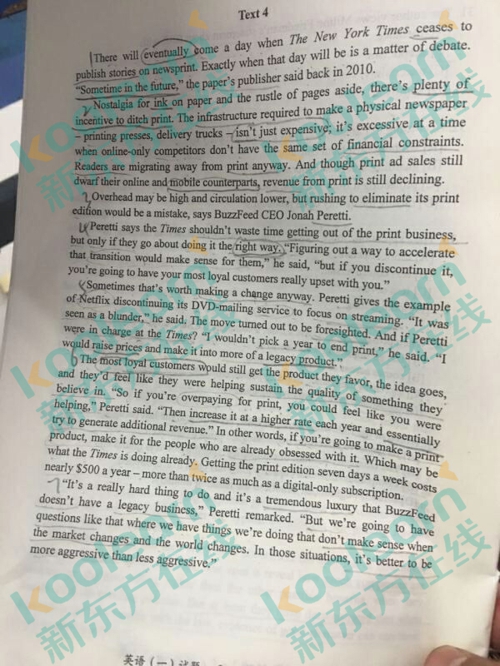 Text 4
There will eventually come a day when The New York Times ceases to
publish stories on newsprint. Exactly when that day will be is a matter of debate.
“Sometime in the future,” the paper's publisher said back in 2010.
Nostalgia for ink on paper and the rustle of pages aside, there's plenty of
incentive to ditch print. The infrastructure required to make a physical newspaper
– printing presses, delivery trucks – isn't just expensive; it's excessive at a time
when online-only competitors don't have the same set of financial constraints.
Readers are migrating away from print anyway. And though print ad sales still
dwarf their online and mobile counterparts, revenue from print is still declining.
Overhead may be high and circulation lower, but rushing to eliminate its print
edition would be a mistake, says BuzzFeed CEO Jonah Peretti.
Peretti says the Times shouldn't waste time getting out of the print business,
but only if they go about doing it the right way. “Figuring out a way to accelerate
that transition would make sense for them,” he said, “but if you discontinue it,
you're going to have your most loyal customers really upset with you.”
Sometimes that's worth making a change anyway. Peretti gives the example
of Netflix discontinuing its DVD-mailing service to focus on streaming. “It was
seen as a blunder,” he said. The move turned out to be foresighted. And if Peretti
were in charge at the Times? “I wouldn't pick a year to end print,” he said. “I
would raise prices and make it into more of a legacy product.”
The most loyal customers would still get the product they favor, the idea goes,
and they'd feel like they were helping sustain the quality of something they
believe in. “So if you're overpaying for print, you could feel like you were
helping,” Peretti said. “Then increase it at a higher rate each year and essentially
try to generate additional revenue.” In other words, if you're going to make a print
product, make it for the people who are already obsessed with it. Which may be
what the Times is doing already. Getting the print edition seven days a week costs
nearly $500 a year – more than twice as much as a digital-only subscription.
“It's a really hard thing to do and it's a tremendous luxury that BuzzFeed
doesn't have a legacy business,” Peretti remarked. “But we're going to have
questions like that where we have things we're doing that don't make sense when
the market changes and the world changes. In those situations, it's better to be
more aggressive than less aggressive.”
英语（一）试题
koolearn
新东方在线
koolearn
新东方在线
koolearn
新东方在线
koolearn
新东方在线